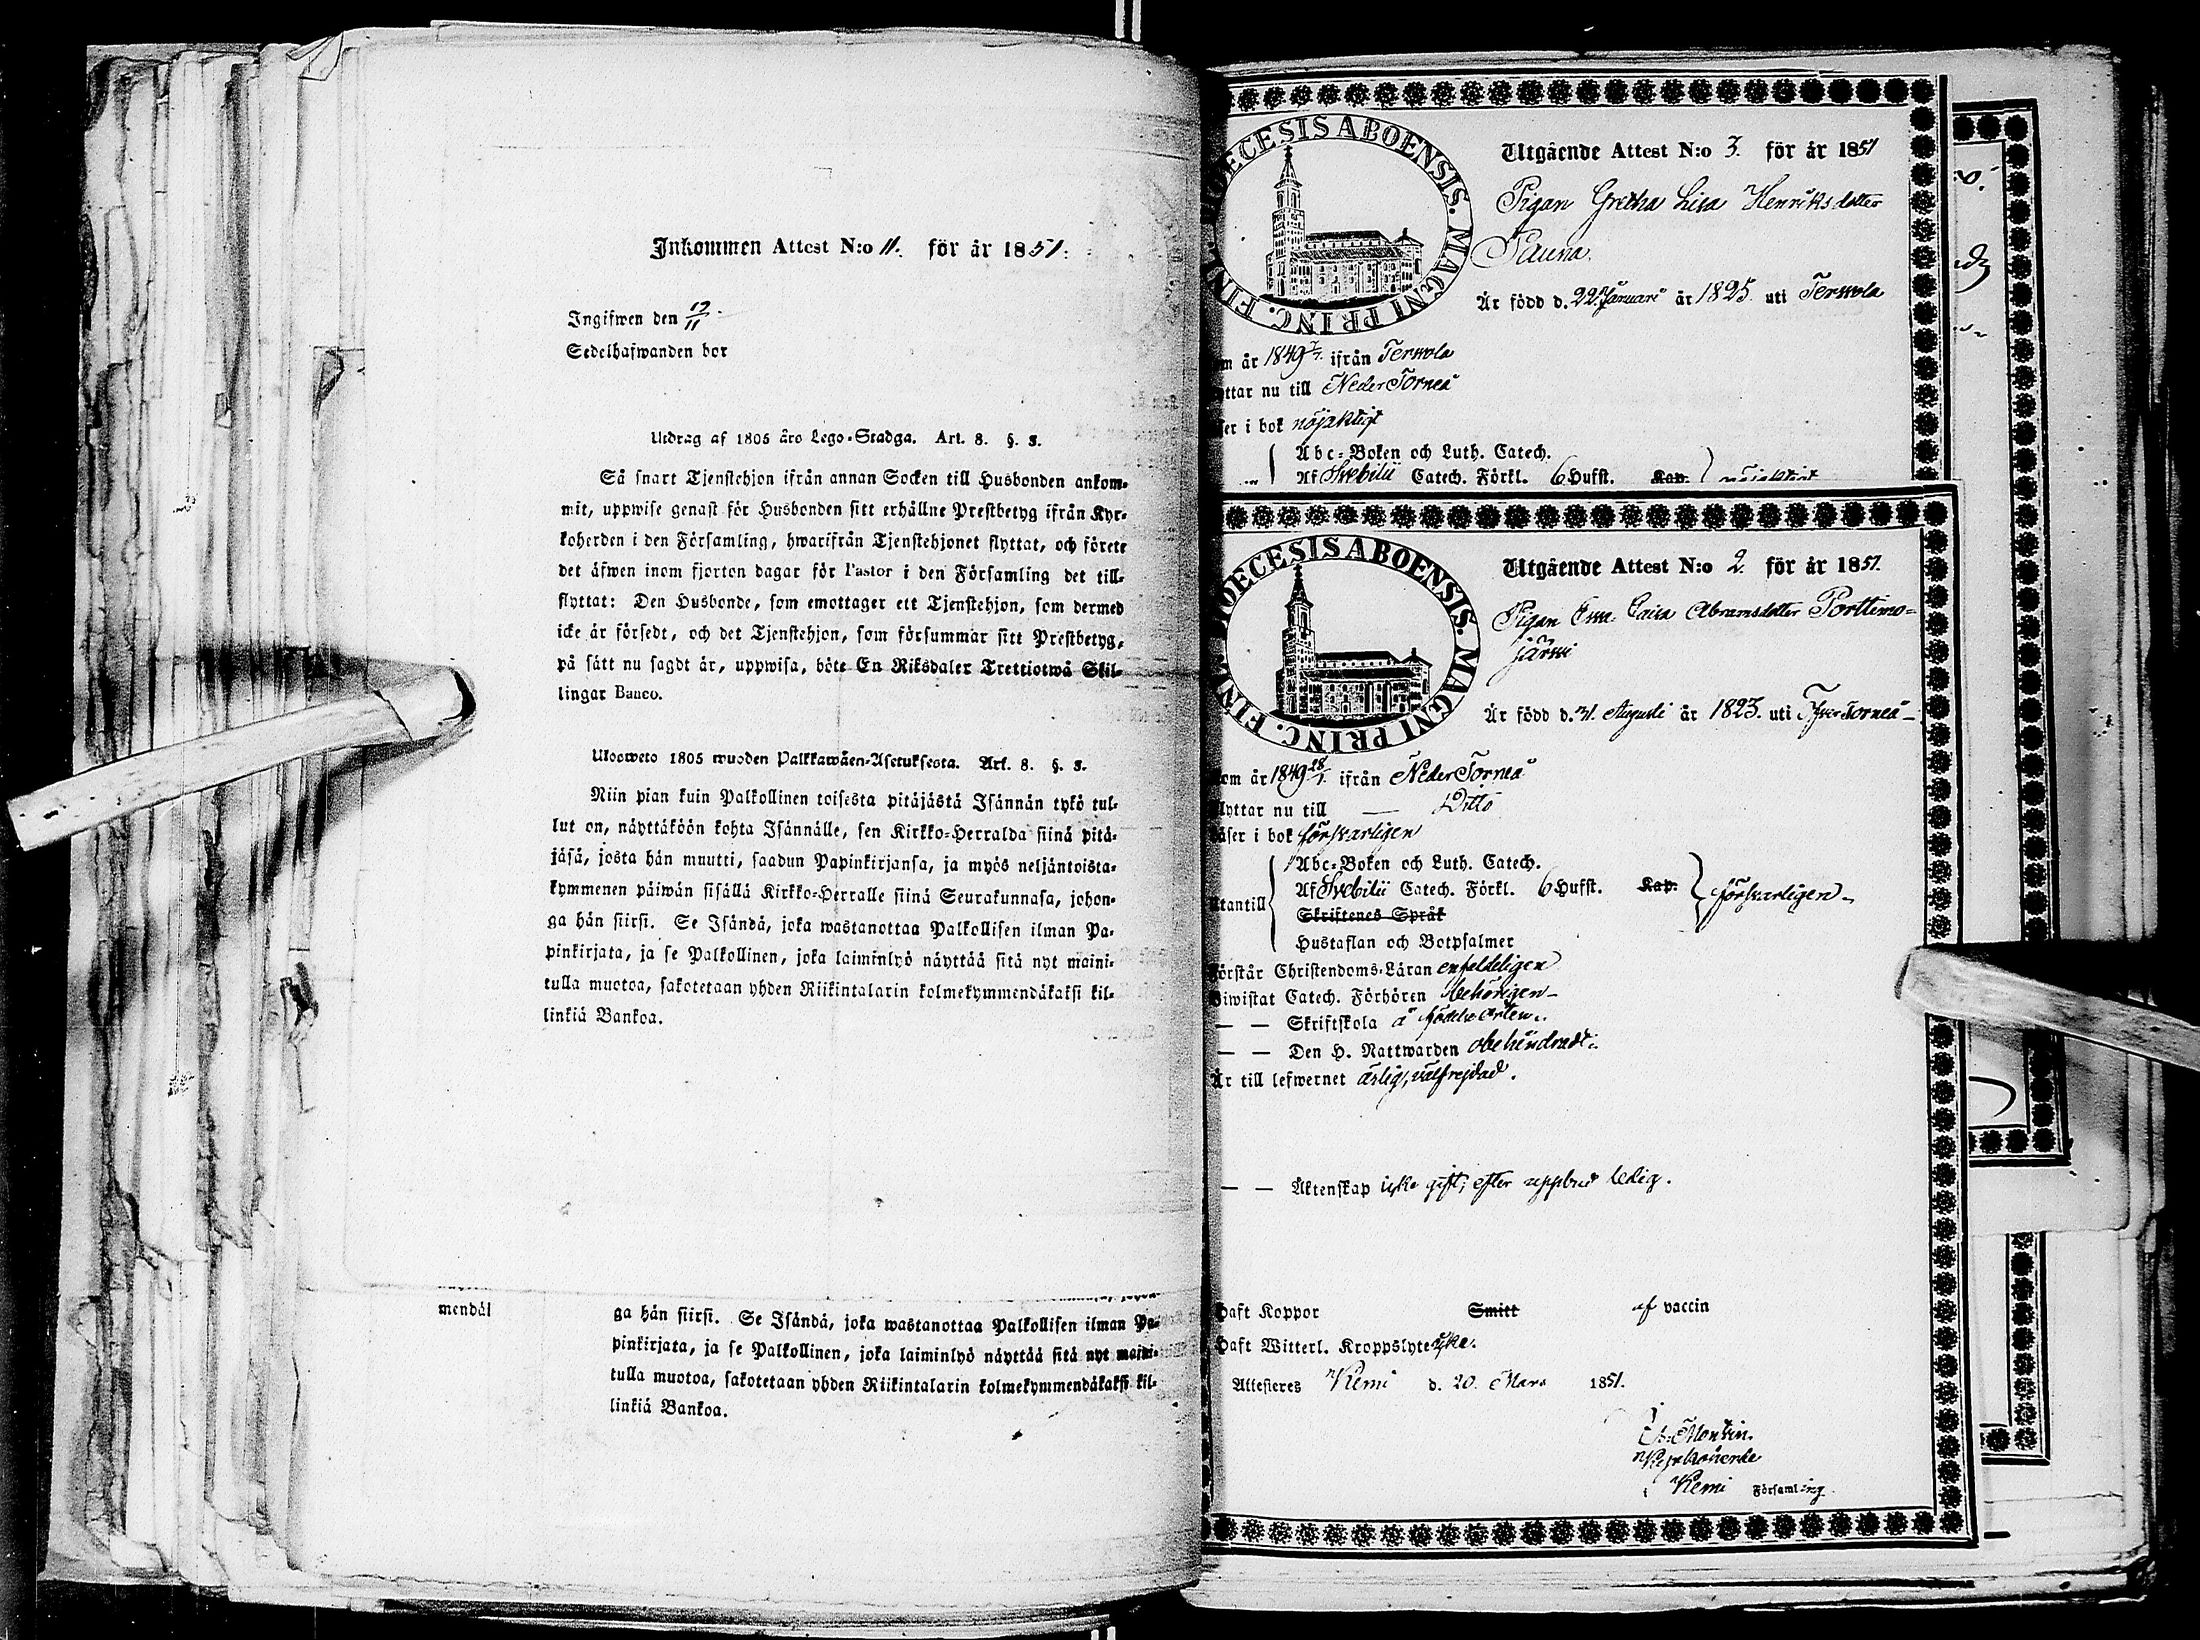 Inkommen Attest N:o 11. för år 1851.
Ingifwen den 17/11.
Sedelhafwanden bor
Utdrag af 1805 års Lego-Stadga. Art. 8. §. 3.
Så snart Tjenstehjon ifrån annan Socken till Husbonden ankom-
mit, uppwise genast för Husbonden sitt erhållne Prestbetyg ifrån Kyr-
koherden i den Församling, hwarifrån Tjenstehjonet flyttat, och förete
det äfwen inom fjorton dagar för Pastor i den Församling det till-
flyttat: Den Husbonde, som emottager ett Tjenstehjon, som dermed
icke är försedt, och det Tjenstehjon, som försummar sitt Prestbetyg,
på sätt nu sagdt är, uppwisa, böte En Riksdaler Trettiotwå Skil-
lingar Banco.
Ulosweto 1805 wuoden Palkkawäen-Asetuksesta. Art. 8. §. 3.
Niin pian kuin Palkollinen toisesta pitäjästä Isännän tykö tul-
lut on, näyttäköön kohta Isännälle, sen Kirkko-Herralda siinä pitä-
jäsä, josta hän muutti, saadun Papinkirjansa, ja myös neljäntoista-
kymmenen päiwän sisällä Kirkko-Herralle siinä Seurakunnasa, johon-
ga hän siirsi. Se Isändä, joka wastanottaa Palkollisen ilman Pa-
pinkirjata, ja se Palkollinen, joka laiminlyö näyttää sitä nyt maini-
tulla muotoa, sakotetaan yhden Riikintalarin kolmekymmendäkaksi kil-
linkiä Bankoa.
mendäl
ga hän siirsi. Se Isändä, joka wastanottaa Palkollisen ilman Pa-
pinkirjata, ja se Palkollinen, joka laiminlyö näyttää sitä nyt maini-
tulla muotoa, sakotetaan yhden Riikintalarin kolmekymmendäkaksi kil-
linkiä Bankoa.
DIOECESIS ABOENSIS. MAGNI PRINC. FIN
Utgående Attest N:o 3. för år 1851
Pigan Gretha Lisa Henriksdotter
Pauna.
Är född d. 22 Januari år 1825. uti Terwola
om år 1849 ifrån Terwola
yttar nu till Neder Torneå
ser i bok nöjaktigt
Abc-Boken och Luth. Catech.
Af Svebilii Catech. Förkl. 6 Hufst. Kap. nöjaktigt
DIOECESIS ABOENSIS. MAGNI PRINC. FIN
Utgående Attest N:o 2. för år 1851.
Pigan Eva Caisa Abramsdotter Porttimo-
järwi
Är född d. 31. Augusti år 1823. uti Öfver Torneå
om år 1849 18/1. ifrån Neder Torneå
lyttar nu till — Ditto
äser i bok försvarligen
Abc-Boken och Luth. Catech.
Af Svebilii Catech. Förkl. 6 Hufst. Kap.
tantill försvarligen
Skriftenes Språk
Hustaflan och Botpsalmer
örstår Christendoms-Läran enfaldeligen
Biwistat Catech. Förhören behörigen
— — Skriftskola å födelseorten.
— — Den H. Nattwarden obehindradt.
Är till lefwernet ärlig, välfrejdad.
— — Äktenskap icke gift, efter uppbud ledig.
Haft Koppor Smitt af vaccin
Haft Witterl. Kroppslyte icke.
Attesteres Kemi d. 20. Mars 1851.
Kyrkoherde
Kemi Församling.